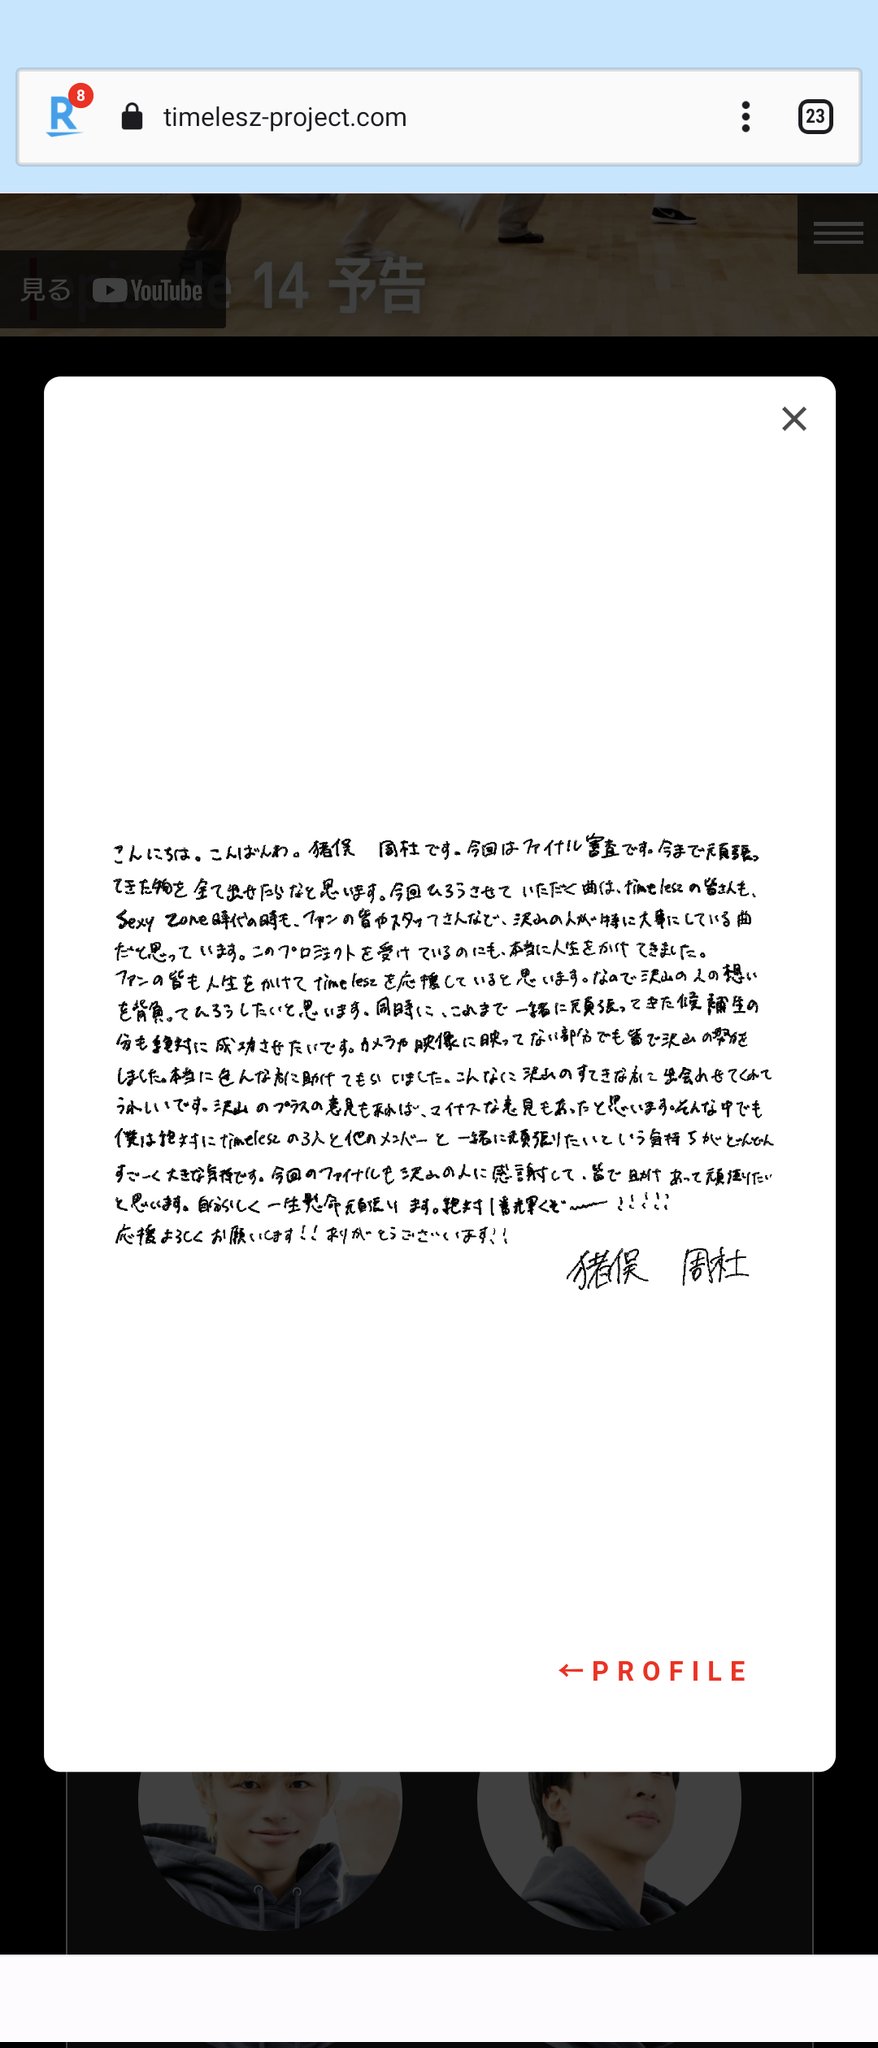 8
timelesz-project.com
23
見る YouTube
episode 14 予告
こんにちは。こんばんわ。猪俣 周杜です。今回はファイナル審査です。今まで頑張っ
てきた物を全て出せたらなと思います。今回ひろうさせていただく曲は、timeleszの皆さんも、
Sexy Zone時代の時も、ファンの皆やスタッフさんなど、沢山の人が特に大事にしている曲
だと思っています。このプロジェクトを受けているのにも、本当に人生をかけてきました。
ファンの皆も人生をかけてtimeleszを応援していると思います。なので沢山の人の想い
を背負ってひろうしたいと思います。同時に、これまで一緒に頑張ってきた候補生の
分も絶対に成功させたいです。カメラや映像に映ってない部分でも皆で沢山の努力を
しました。本当に色んな方に助けてもらいました。こんなに沢山のすてきな方に出会わせてくれて
うれしいです。沢山のプラスの意見もあれば、マイナスな意見もあったと思います。そんな中でも
僕は絶対にtimeleszの3人と他のメンバーと一緒に頑張りたいという気持ちがどんどん
すごーく大きな気持です。今回のファイナルも沢山の人に感謝して、皆で助けあって頑張りたい
と思います。自分らしく一生懸命頑張ります。絶対1番光輝くぞ〜!!!!!
応援よろしくお願いします!!ありがとうございます!!
猪俣 周杜
←PROFILE